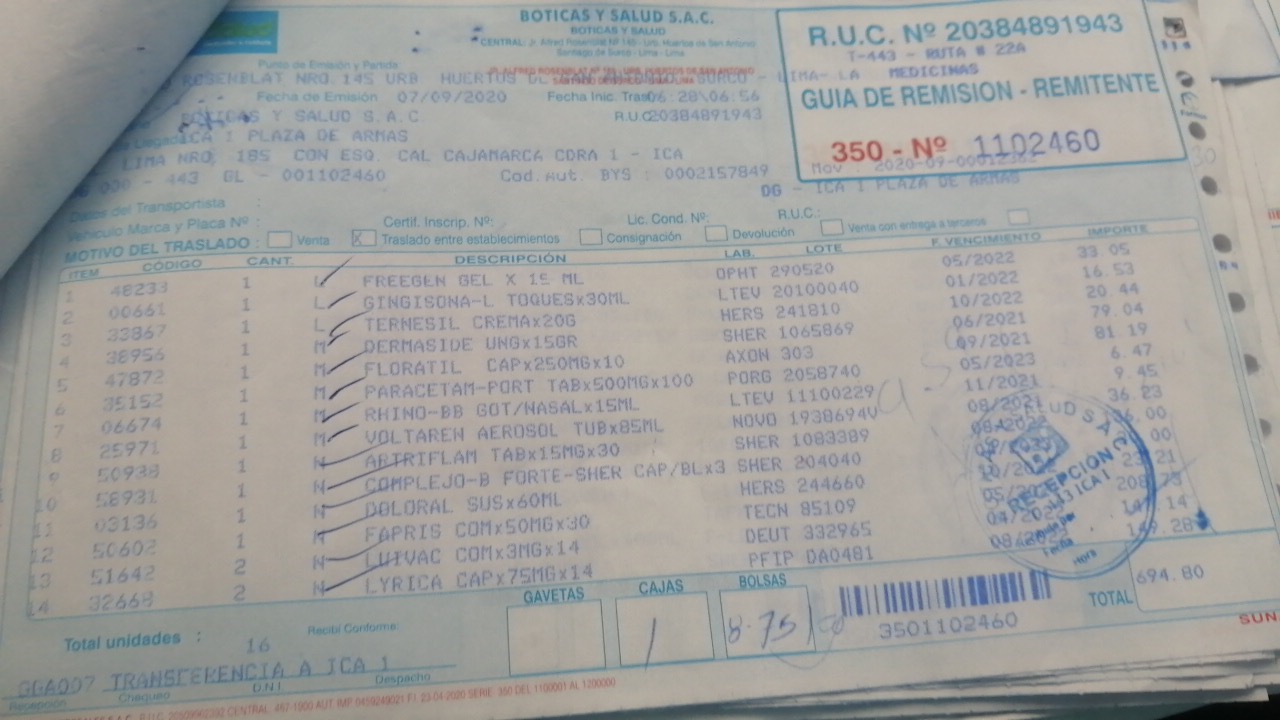 BOTICAS Y SALUD S.A.C.
BOTICAS Y SALUD
CENTRAL: Jr. Alfred Rosenblat Nº 145 - Urb. Huertos de San Antonio
Santiago de Surco - Lima - Lima
R.U.C. Nº 20384891943
T-443 - RUTA # 22A
MEDICINAS
GUIA DE REMISION - REMITENTE
350 - Nº 1102460
Punto de Emisión y Partida
ROSENBLAT NRO. 145 URB HUERTOS DE SAN ANTONIO SURCO - LIMA- LA
Fecha de Emisión 07/09/2020 Fecha Inic. Tras 06:28\06:56
BOTICAS Y SALUD S.A.C R.U.C 20384891943
ICA I PLAZA DE ARMAS
LIMA NRO. 185 CON ESQ. CAL CAJAMARCA CDRA 1 - ICA
Mov : 2020-09-00012362
- 443 GL - 001102460 Cod. Aut. BYS : 0002157849 DG - ICA I PLAZA DE ARMAS
Datos del Transportista :
Vehículo Marca y Placa Nº : Certif. Inscrip. Nº: Lic. Cond. Nº: R.U.C.:
MOTIVO DEL TRASLADO : Venta X Traslado entre establecimientos Consignación Devolución Venta con entrega a terceros
ITEM CÓDIGO CANT. DESCRIPCIÓN LAB. LOTE F. VENCIMIENTO IMPORTE
1 48233 1 L FREEGEN GEL X 15 ML OPHT 290520 05/2022 33.05
2 00661 1 L GINGISONA-L TOQUESx30ML LTEV 20100040 01/2022 16.53
3 33867 1 L TERNESIL CREMAx20G HERS 241810 10/2022 20.44
4 38956 1 M DERMASIDE UNGx15GR SHER 1065869 06/2021 79.04
5 47872 1 M FLORATIL CAPx250MGx10 AXON 303 09/2021 81.19
6 35152 1 M PARACETAM-PORT TABx500MGx100 PORG 2058740 05/2023 6.47
7 06674 1 M RHINO-BB GOT/NASALx15ML LTEV 11100229 11/2021 9.45
8 25971 1 M VOLTAREN AEROSOL TUBx85ML NOVO 1938694V 08/2021 36.23
9 50938 1 N ARTRIFLAM TABx15MGx30 SHER 1083389
10 58931 1 N COMPLEJO-B FORTE-SHER CAP/BLx3 SHER 204040
11 03136 1 N DOLORAL SUSx60ML HERS 244660
12 50602 1 N FAPRIS COMx50MGx30 TECN 85109
13 51642 2 N LUIVAC COMx3MGx14 DEUT 332965
14 32668 2 N LYRICA CAPx75MGx14 PFIP DA0481 149.28
SALUD S.A.C.
RECEPCIÓN
Fecha
Hora
Total unidades : 16
Recibí Conforme:
GAVETAS CAJAS BOLSAS
3501102460
TOTAL 694.80
GGA007 TRANSFERENCIA A ICA 1
Recepción Chequeo D.N.I. Despacho